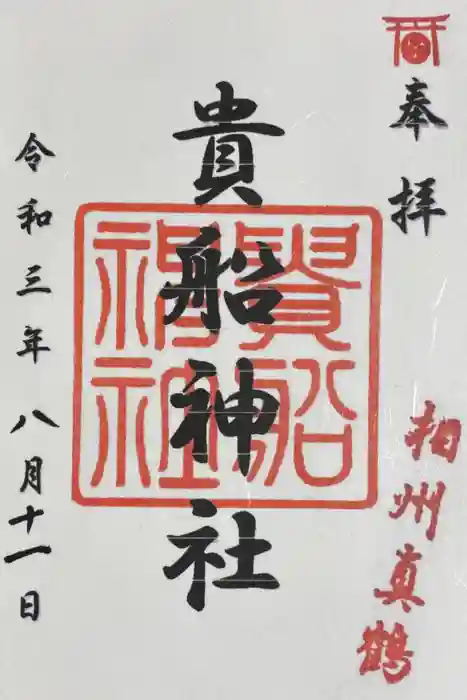 奉拝
相州真鶴
貴船神社
貴船神社
令和三年八月十一日